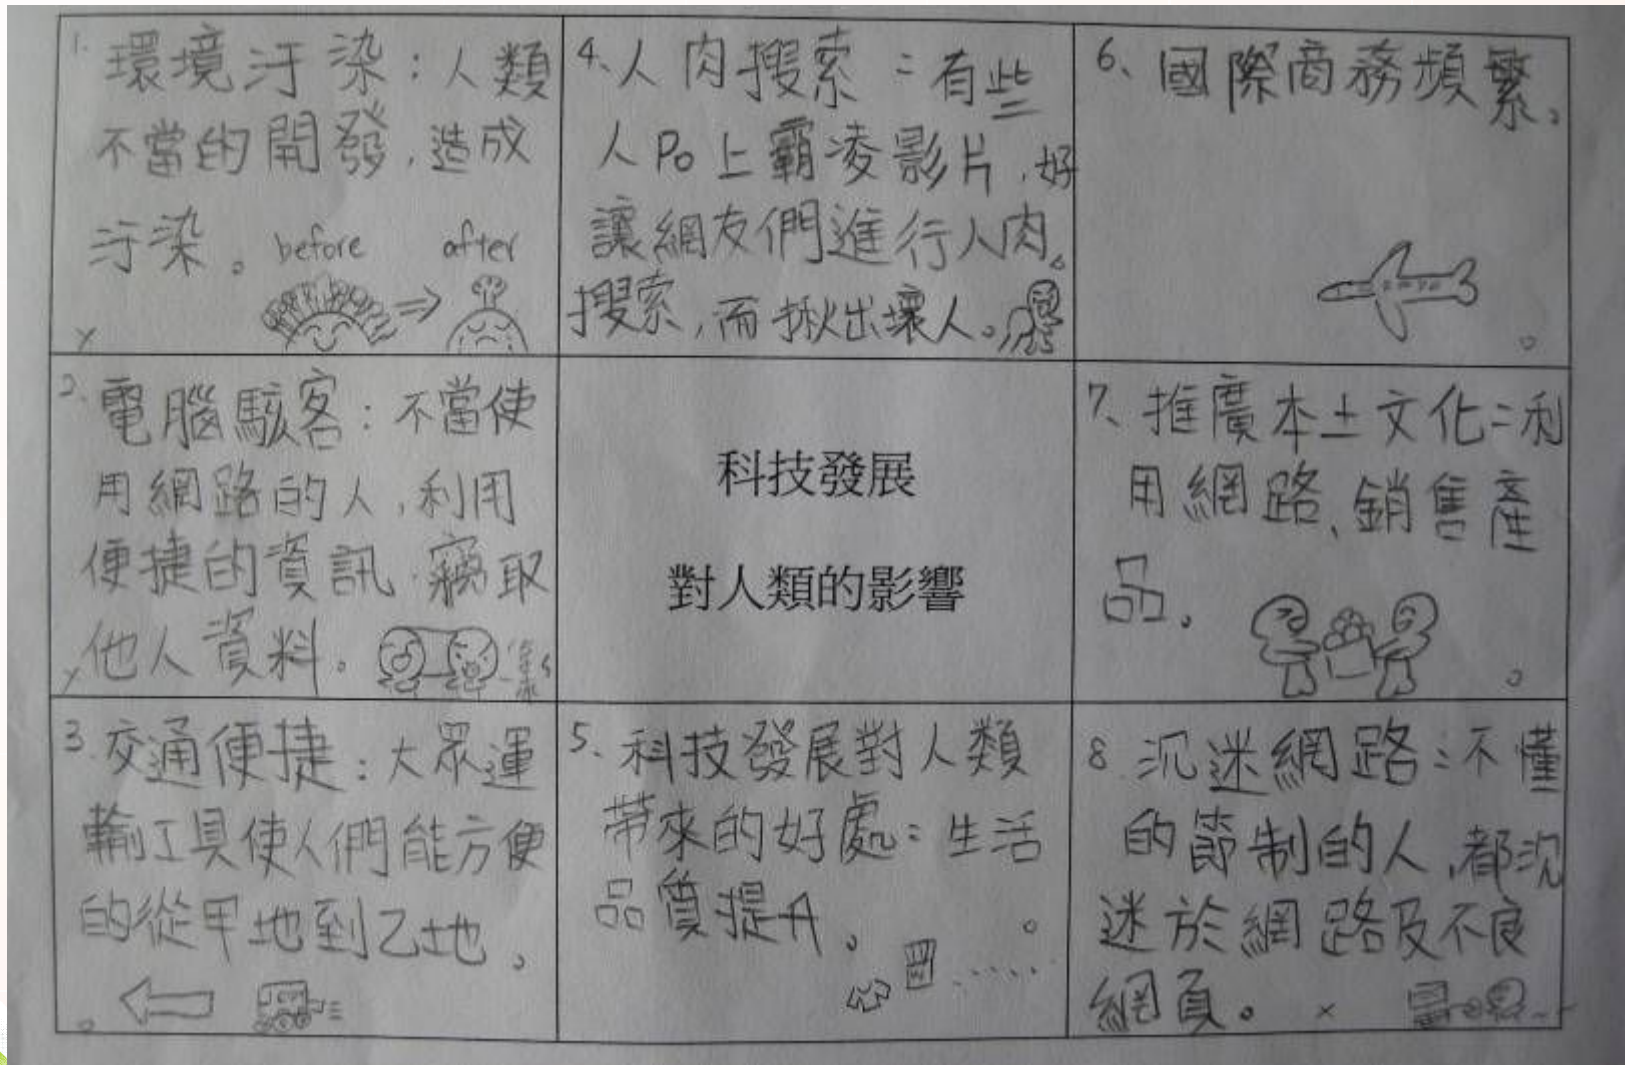 1. 環境汙染：人類
不當的開發，造成
汙染。
before after
2. 電腦駭客：不當使
用網路的人，利用
便捷的資訊，竊取
他人資料。
3. 交通便捷：大眾運
輸工具使人們能方便
的從甲地到乙地。
4、人肉搜索：有些
人Po上霸凌影片，好
讓網友們進行人肉
搜索，而揪出壞人。
科技發展
對人類的影響
5、科技發展對人類
帶來的好處：生活
品質提升。
6、國際商務頻繁。
7、推廣本土文化：利
用網路、銷售產
品。
8. 沉迷網路：不懂
的節制的人，都沉
迷於網路及不良
網頁。